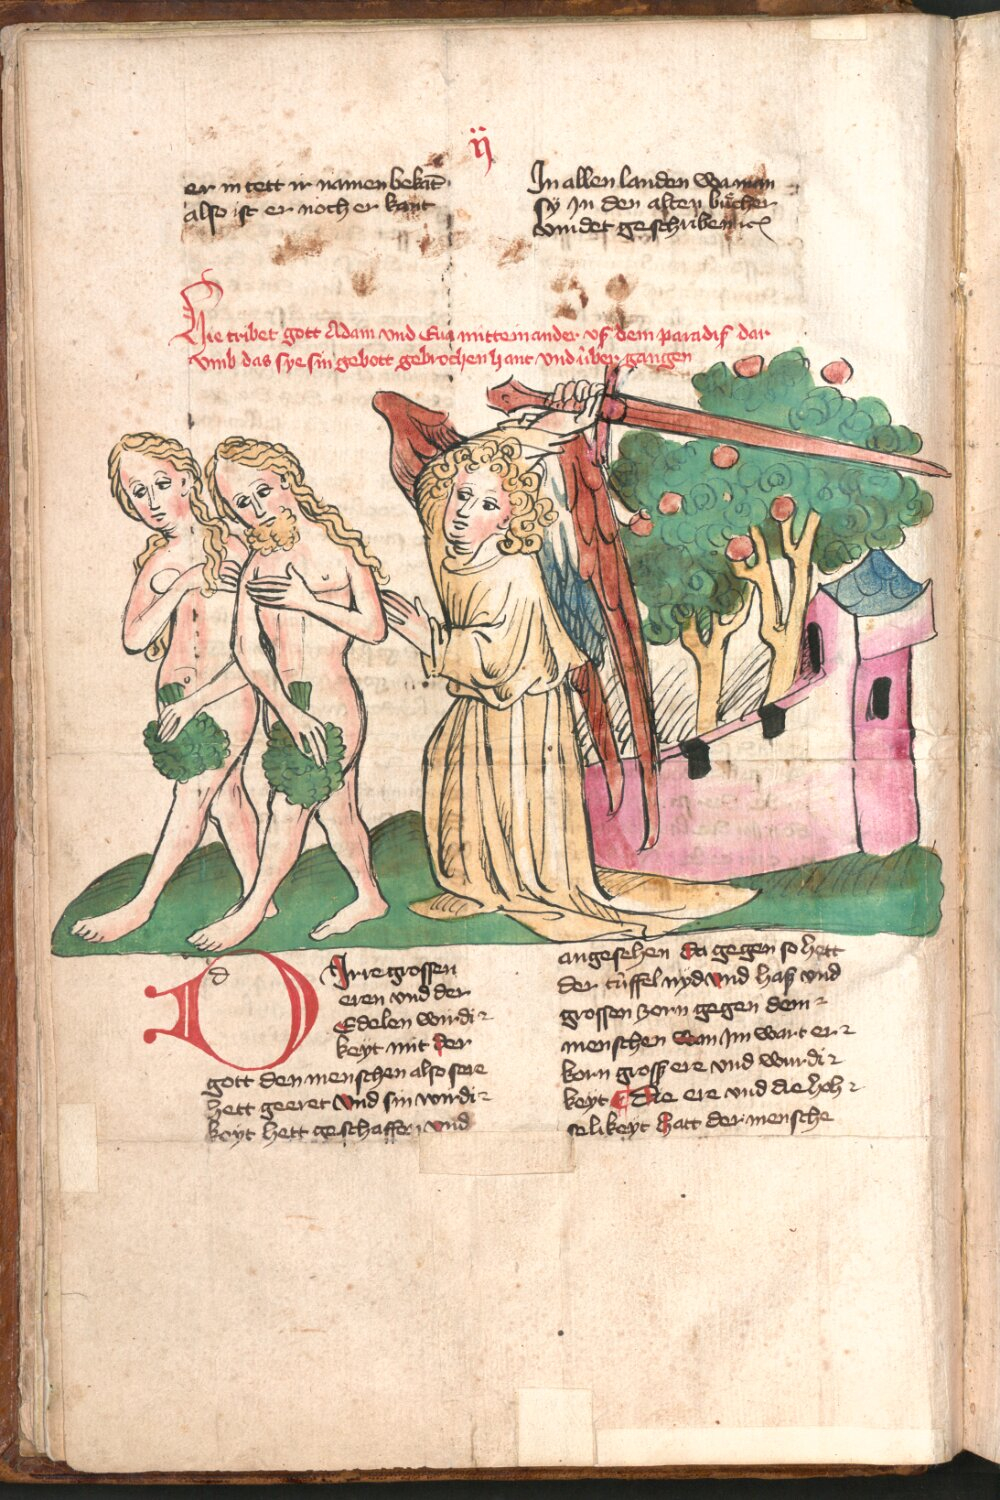 ij
er in tett ir namen bekāt
also ist er noch er kant
In allen landen wa man
sy In den alten bücher
vindet geschriben ⁊c
Hie tribet gott Adam vnd Eua mitteinander vſ dem paradiſ dar
vmb das sye sin gebott gebrochen hant vnd über gangen
DIrre grossen
eren vnd der
Edelen wirdi⸗
keyt mit der
gott den menschen also sere
hett geeret Vnd sin wirdi⸗
keyt hett geschaffen vnd
angesehen da gegen so hett
der tüffel nyd vnd haß vnd
grossen zorn gegen dem⸗
menschen wan Im wart er⸗
korn groß ere vnd wirdi⸗
keyt Die ere vnd die hoh⸗
selikeyt hatt der mensche